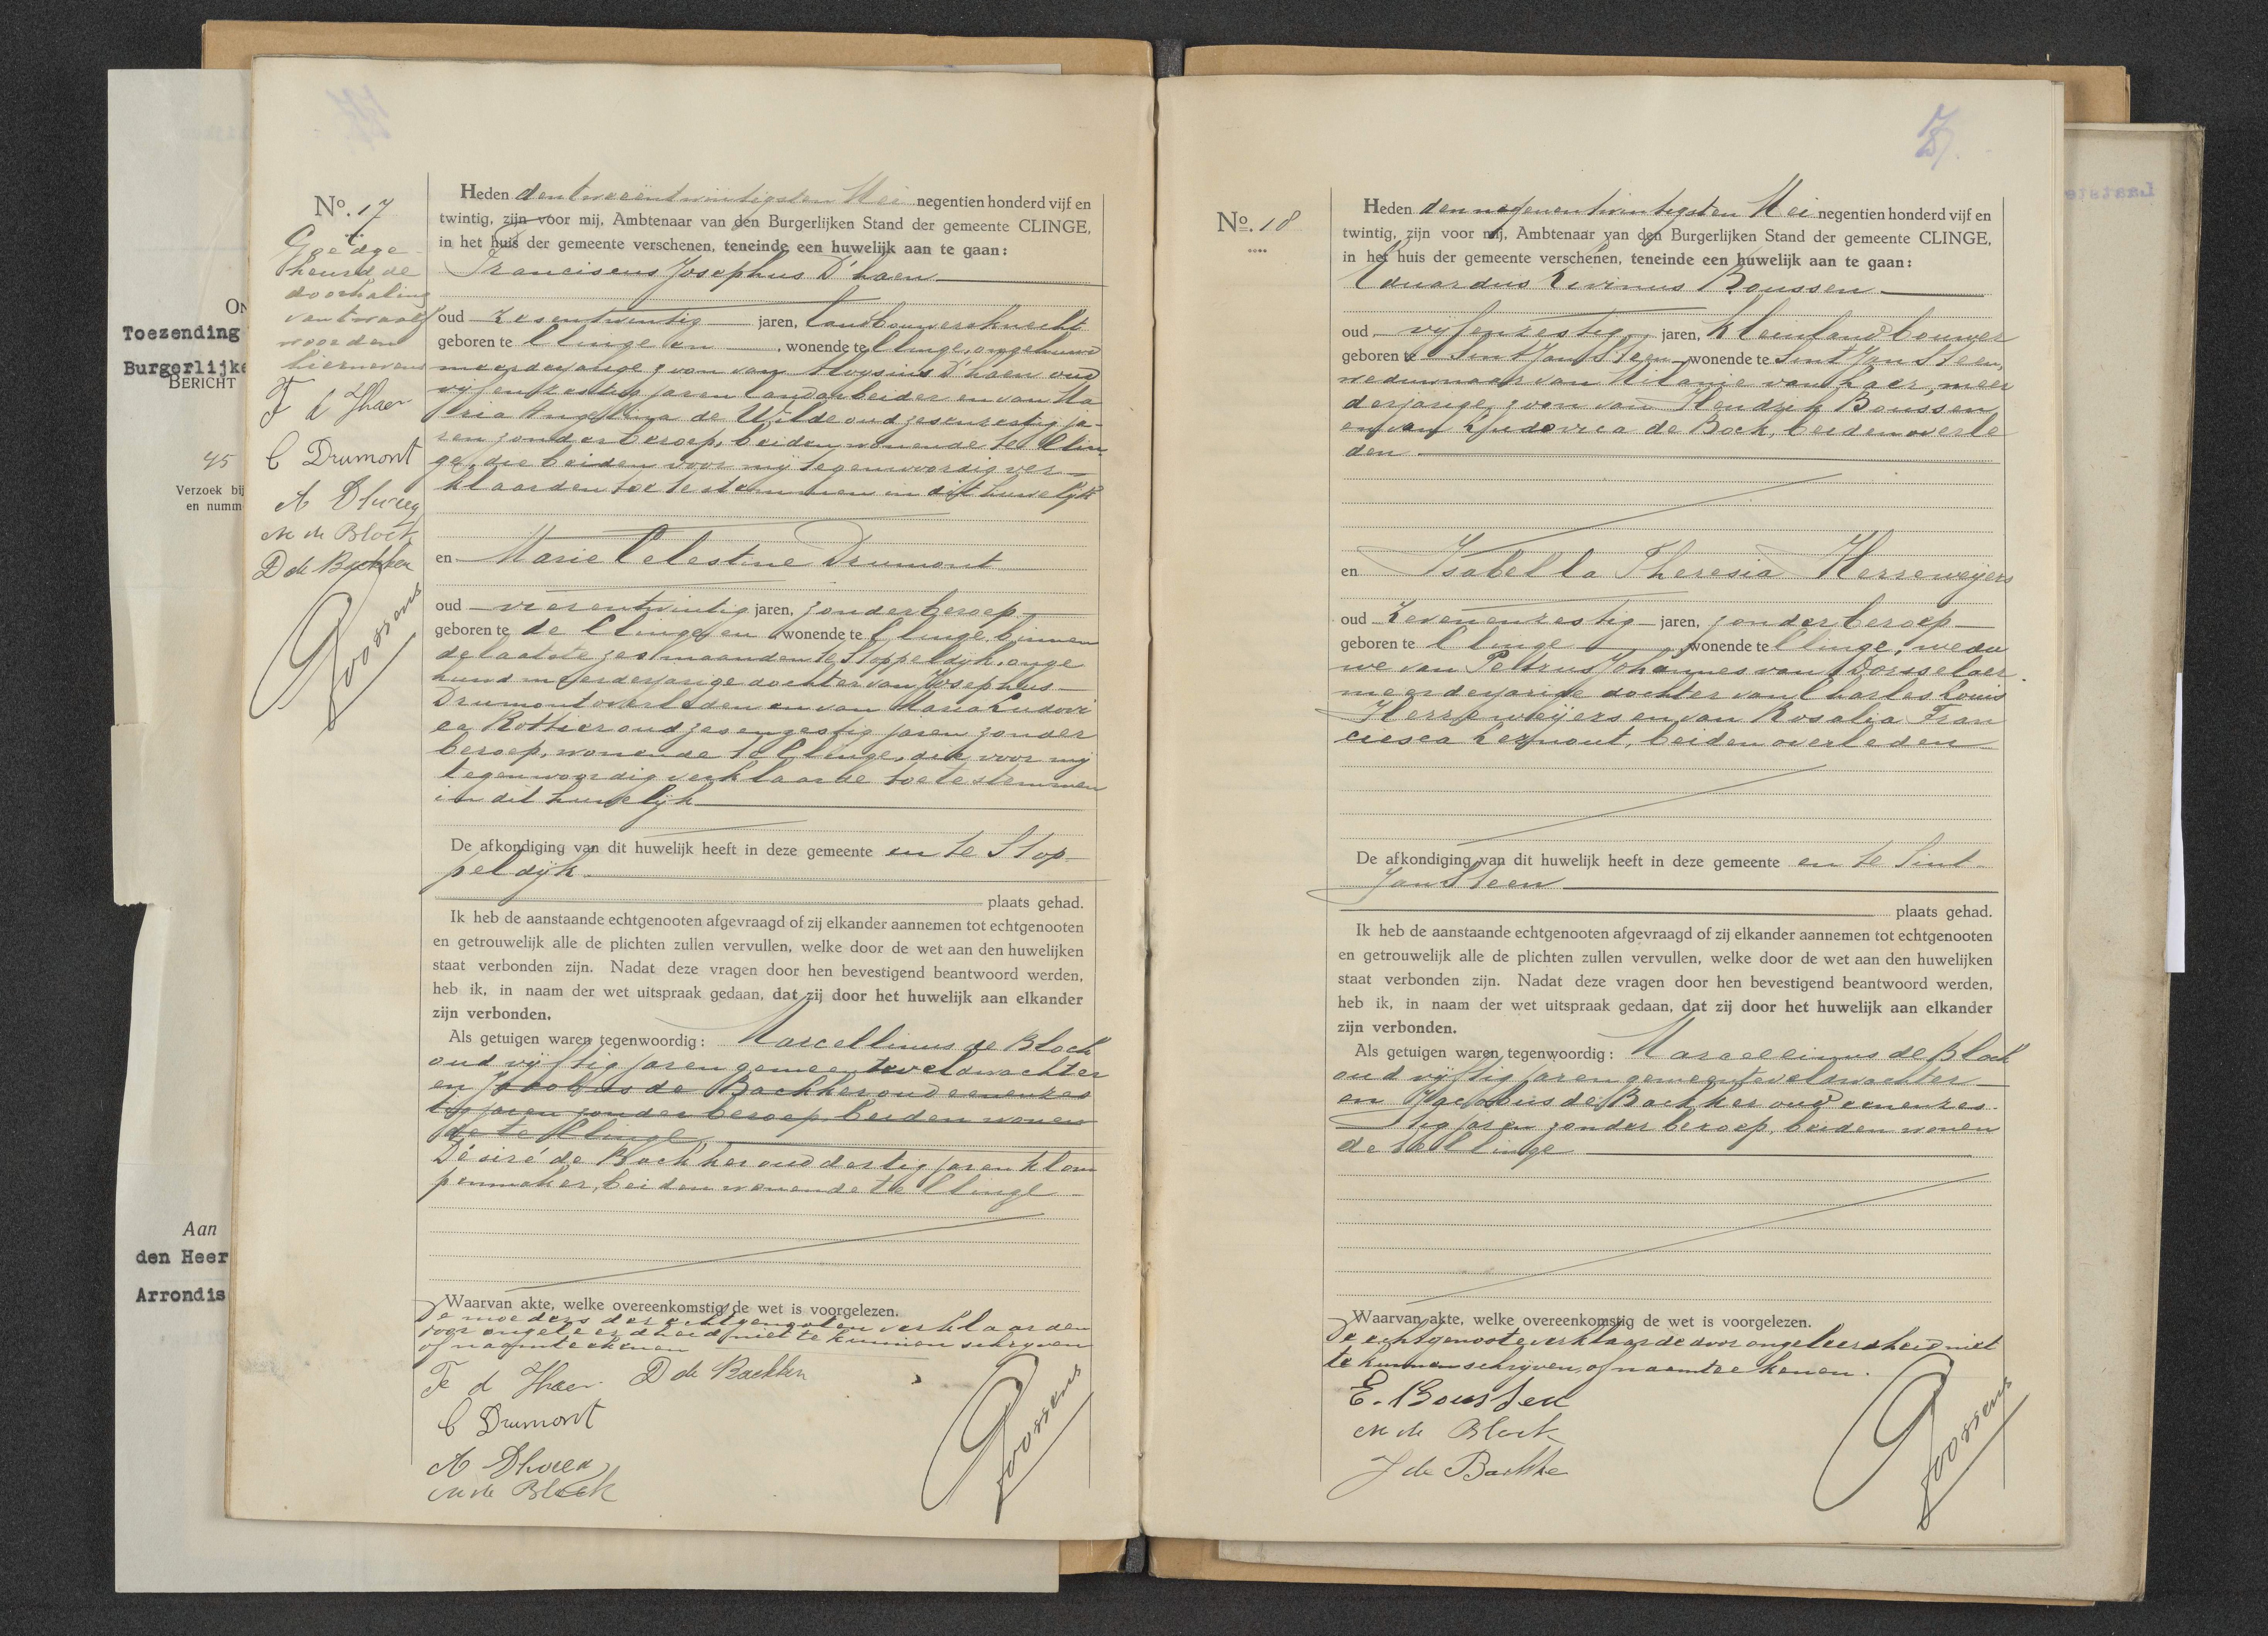 Toezending
Burgerlijke
BERICHT
45
Verzoek bij
en numm
Aan
den Heer
Arrondis
No. 17
Goedge-
keurd de
doorhaling
van twaalf
woorden
hiernevens
F d Haen
C Drumont
A Dhaen
M de Block
D de Backker
Goossens
Heden den tweeëntwintigsten Mei negentien honderd vijf en
twintig, zijn voor mij, Ambtenaar van den Burgerlijken Stand der gemeente CLINGE,
in het huis der gemeente verschenen, teneinde een huwelijk aan te gaan:
Franciscus Josephus D'haen
oud zesentwintig jaren, landbouwersknecht
geboren te Clinge en wonende te Clinge, ongehuwd
meerderjarige zoon van Aloysius D'haen oud
vijfenzestig jaren landarbeider en van Ma
ria Angelina de Wilde oud zesenzestig ja-
ren zonder beroep, beiden wonende te Clin
ge, die beiden voor mij tegenwoordig ver-
klaarden toe te stemmen in dit huwelijk
en Marie Celestine Drumont
oud vierentwintig jaren, zonder beroep
geboren te de Clinge en wonende te Clinge, binnen
de laatste zes maanden te Stoppeldijk, onge
huwd meerderjarige dochter van Josephus
Drumont overleden en van Maria Ludovi
ca Rottier oud zesenzestig jaren zonder
beroep, wonende te Clinge, die voor mij
tegenwoordig verklaarde toe te stemmen
in dit huwelijk
De afkondiging van dit huwelijk heeft in deze gemeente en te Stop-
peldijk
plaats gehad.
Ik heb de aanstaande echtgenooten afgevraagd of zij elkander aannemen tot echtgenooten
en getrouwelijk alle de plichten zullen vervullen, welke door de wet aan den huwelijken
staat verbonden zijn. Nadat deze vragen door hen bevestigend beantwoord werden,
heb ik, in naam der wet uitspraak gedaan, dat zij door het huwelijk aan elkander
zijn verbonden.
Als getuigen waren tegenwoordig: Marcellinus de Block
oud vijftig jaren gemeenteveldwachter
en Jacobus de Backker oud eenenzes
tig jaren zonder beroep, beiden wonen
de te Clinge
Désiré de Backker oud dertig jaren klom
penmaker, beiden wonende te Clinge
Waarvan akte, welke overeenkomstig de wet is voorgelezen.
De moeders der echtgenooten verklaarden
door ongeleerdheid niet te kunnen schrijven
of naamteekenen
F d Haen D de Backker
C Drumont
A Dhaen
M de Block
Goossens
No. 18
Heden den negenentwintigsten Mei negentien honderd vijf en
twintig, zijn voor mij, Ambtenaar van den Burgerlijken Stand der gemeente CLINGE,
in het huis der gemeente verschenen, teneinde een huwelijk aan te gaan:
Eduardus Livinus Boussen
oud vijfenzestig jaren, kleinlandbouwer
geboren te Sint Jan Steen wonende te Sint Jan Steen,
weduwnaar van Melanie van Haer, meer
derjarige zoon van Hendrik Boussen
en van Ludovica de Bock, beiden overle
den
en Isabella Theresia Herreweijers
oud zevenenzestig jaren, zonder beroep
geboren te Clinge wonende te Clinge, wedu
we van Pettrus Johannes van Dorsselaer
meerderjarige dochter van Charles Louis
Herreweijers en van Rosalia Fran
cisca Lernout, beiden overleden
De afkondiging van dit huwelijk heeft in deze gemeente en te Sint
Jan Steen
plaats gehad.
Ik heb de aanstaande echtgenooten afgevraagd of zij elkander aannemen tot echtgenooten
en getrouwelijk alle de plichten zullen vervullen, welke door de wet aan den huwelijken
staat verbonden zijn. Nadat deze vragen door hen bevestigend beantwoord werden,
heb ik, in naam der wet uitspraak gedaan, dat zij door het huwelijk aan elkander
zijn verbonden.
Als getuigen waren tegenwoordig: Marcellinus de Block
oud vijftig jaren gemeenteveldwachter
en Jacobus de Backker oud eenenzes-
tig jaren zonder beroep, beiden wonen
de te Clinge
Waarvan akte, welke overeenkomstig de wet is voorgelezen.
De echtgenoote verklaarde door ongeleerdheid niet
te kunnen schrijven, of naamteekenen.
E. Boussen
M de Block
J de Backker
Goossens